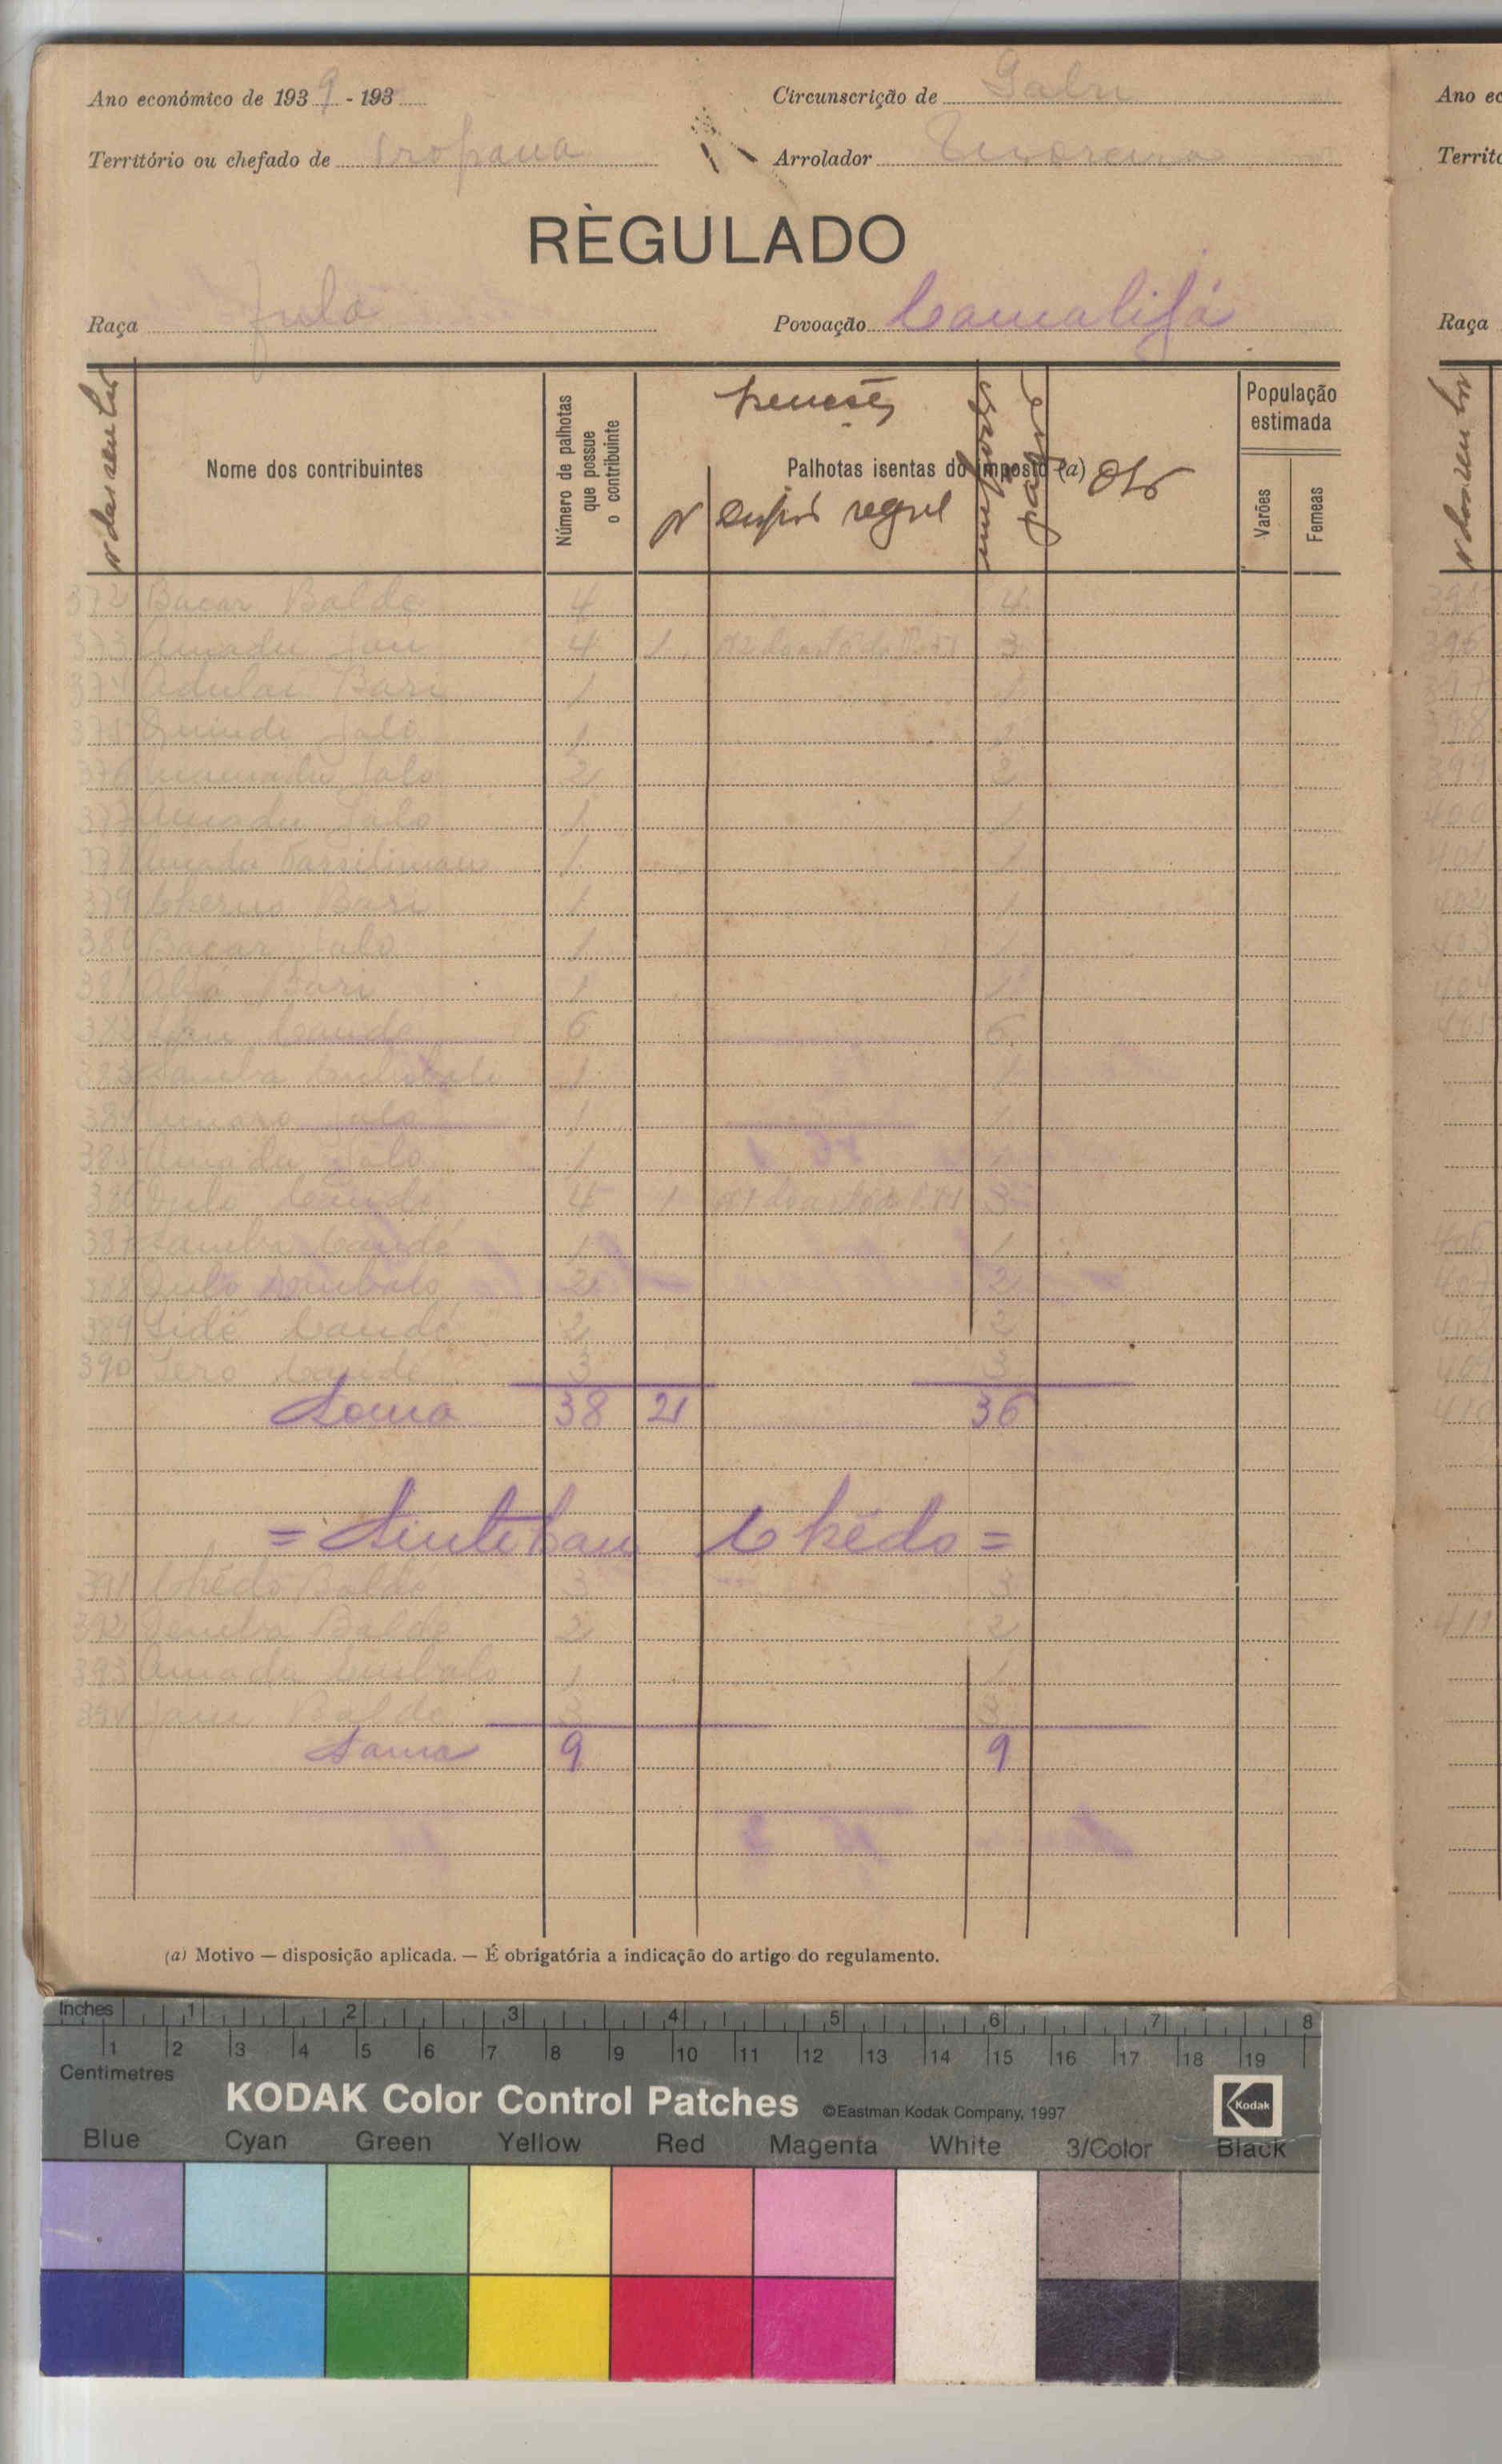 Ano económico de 1939 - 193
Circunscrição de Gabu
Território ou chefado de Propana
Arrolador
RÈGULADO
Raça fula
Povoação Camalifá
Nome dos contribuintes
Número de palhotas que possue o contribuinte
Palhotas isentas do imposto (a) Obs
População estimada
Varões
Femeas
372 Bacar Balde 4 4
373 Amadu 4 1 3
374 Adulai Bari 1 1
375 Jalo 1
376 Mamadu Jalo 2 2
377 Amadu Jalo 1 1
378 Amadu 1 1
379 Cherno Bari 1 1
380 Bacar Jalo 1 1
381 Alfa Bari 1 1
382 Candé 6 6
383 Samba 1 1
384 Jalo 1 1
385 Amadu Jalo 1
386 Candé 4 1 3
387 Samba Candé 1 1
388 2 2
389 Sidé Candé 2 2
390 Sero Candé 3 3
Soma 38 2 36
= Sintcham Chédo =
391 Chédo Baldé 3 3
392 Demba Baldé 2 2
393 Amadu Embalo 1 1
394 Baldé 3 3
Soma 9 9
(a) Motivo — disposição aplicada. — É obrigatória a indicação do artigo do regulamento.
Ano ec
Territó
Raça
396
397
398
399
400
401
402
403
404
405
406
407
408
409
410
411
Inches 1 2 3 4 5 6 7 8
1 2 3 4 5 6 7 8 9 10 11 12 13 14 15 16 17 18 19
Centimetres
KODAK Color Control Patches ©Eastman Kodak Company, 1997 Kodak
Blue Cyan Green Yellow Red Magenta White 3/Color Black